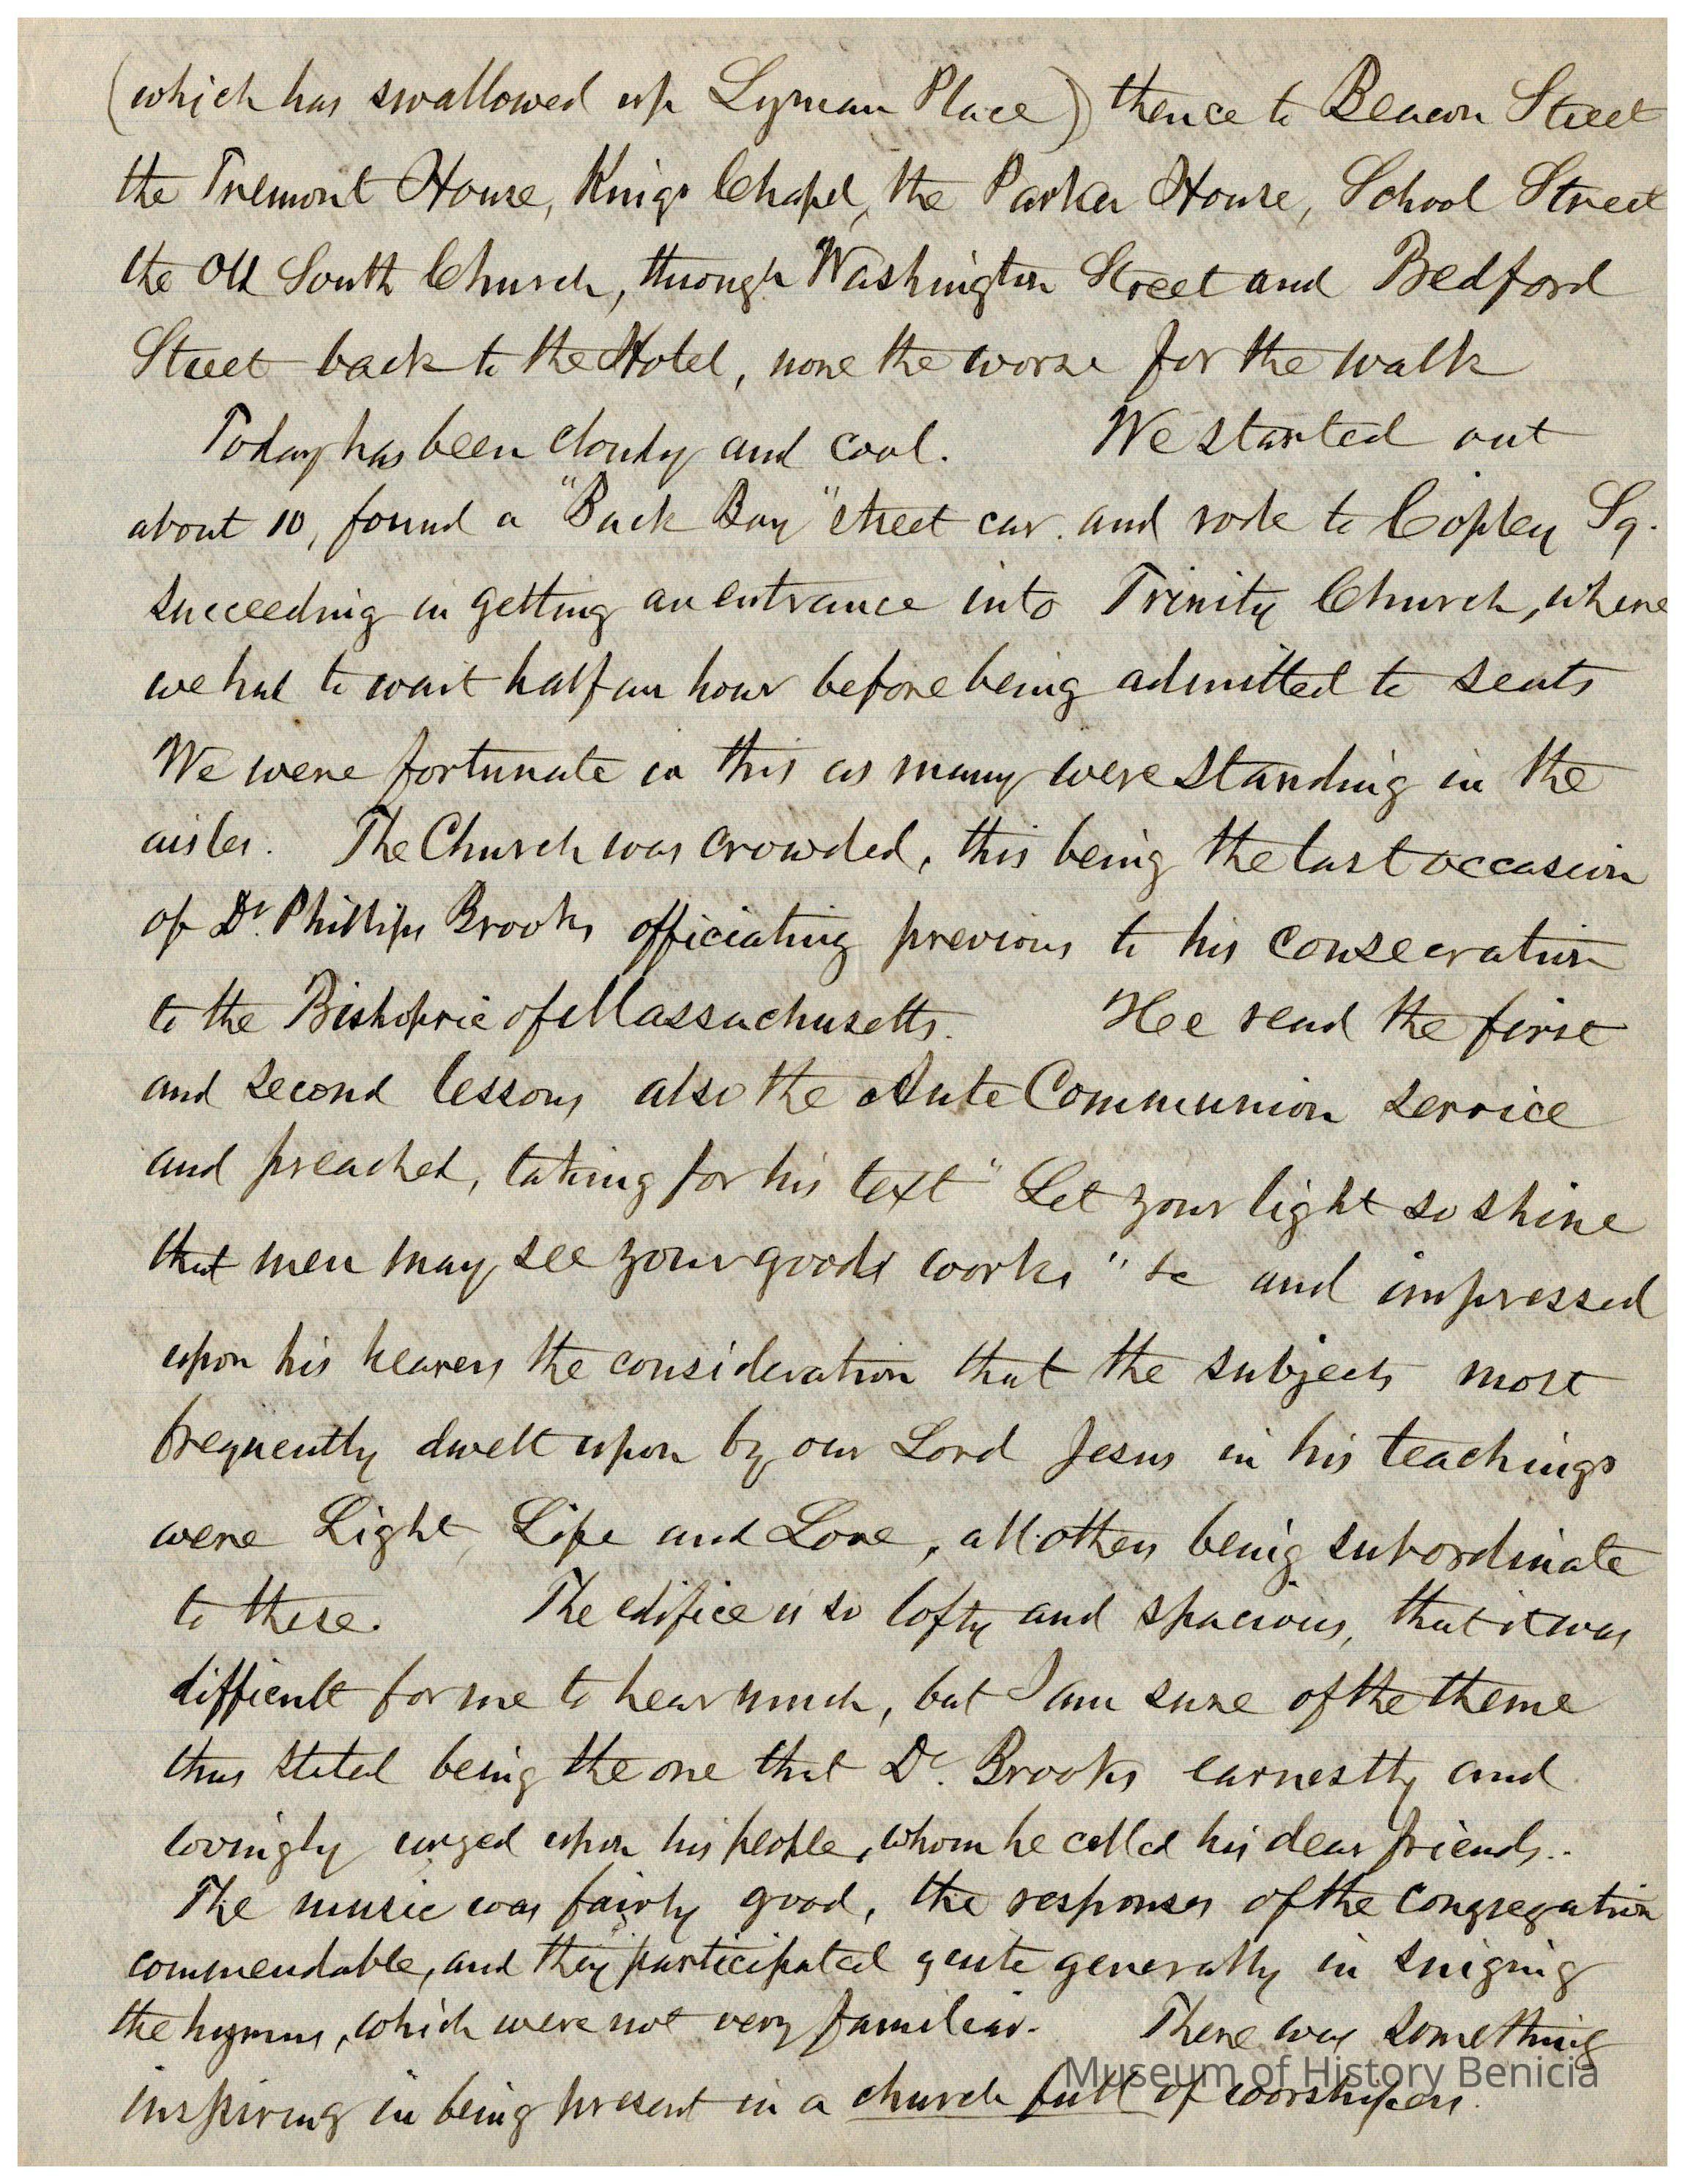 (which has swallowed up Lyman Place) thence to Beacon Street
the Tremont House, Kings Chapel, the Parker House, School Street
the Old South Church, through Washington Street and Bedford
Street back to the Hotel, none the worse for the walk
Today has been cloudy and cool. We started out
about 10, found a "Back Bay" street car. and rode to Copley Sq.
succeeding in getting an entrance into Trinity Church, where
we had to wait half an hour before being admitted to seats
We were fortunate in this as many were standing in the
aisles. The Church was crowded, this being the last occasion
of Dr. Phillips Brooks officiating previous to his consecration
to the Bishopric of Massachusetts. Hee read the first
and second lessons also the Ante Communion service
and preached, taking for his text "Let your light so shine
that men may see your goods works" &c and impressed
upon his hearers the consideration that the subjects most
frequently dwelt upon by our Lord Jesus in his teachings
were Light, Life and Love, all others being subordinate
to these. The edifice is so lofty and spacious, that it was
difficult for me to hear much, but I am sure of the theme
thus stated being the one that Dr. Brooks earnestly and
lovingly urged upon his people, whom he called his dear friends..
The music was fairly good, the responses of the congregation
commendable, and they participated quite generally in singing
the hymns, which were not very familiar. There was something
inspiring in being present in a church full of worshipers.
Museum of History Benicia